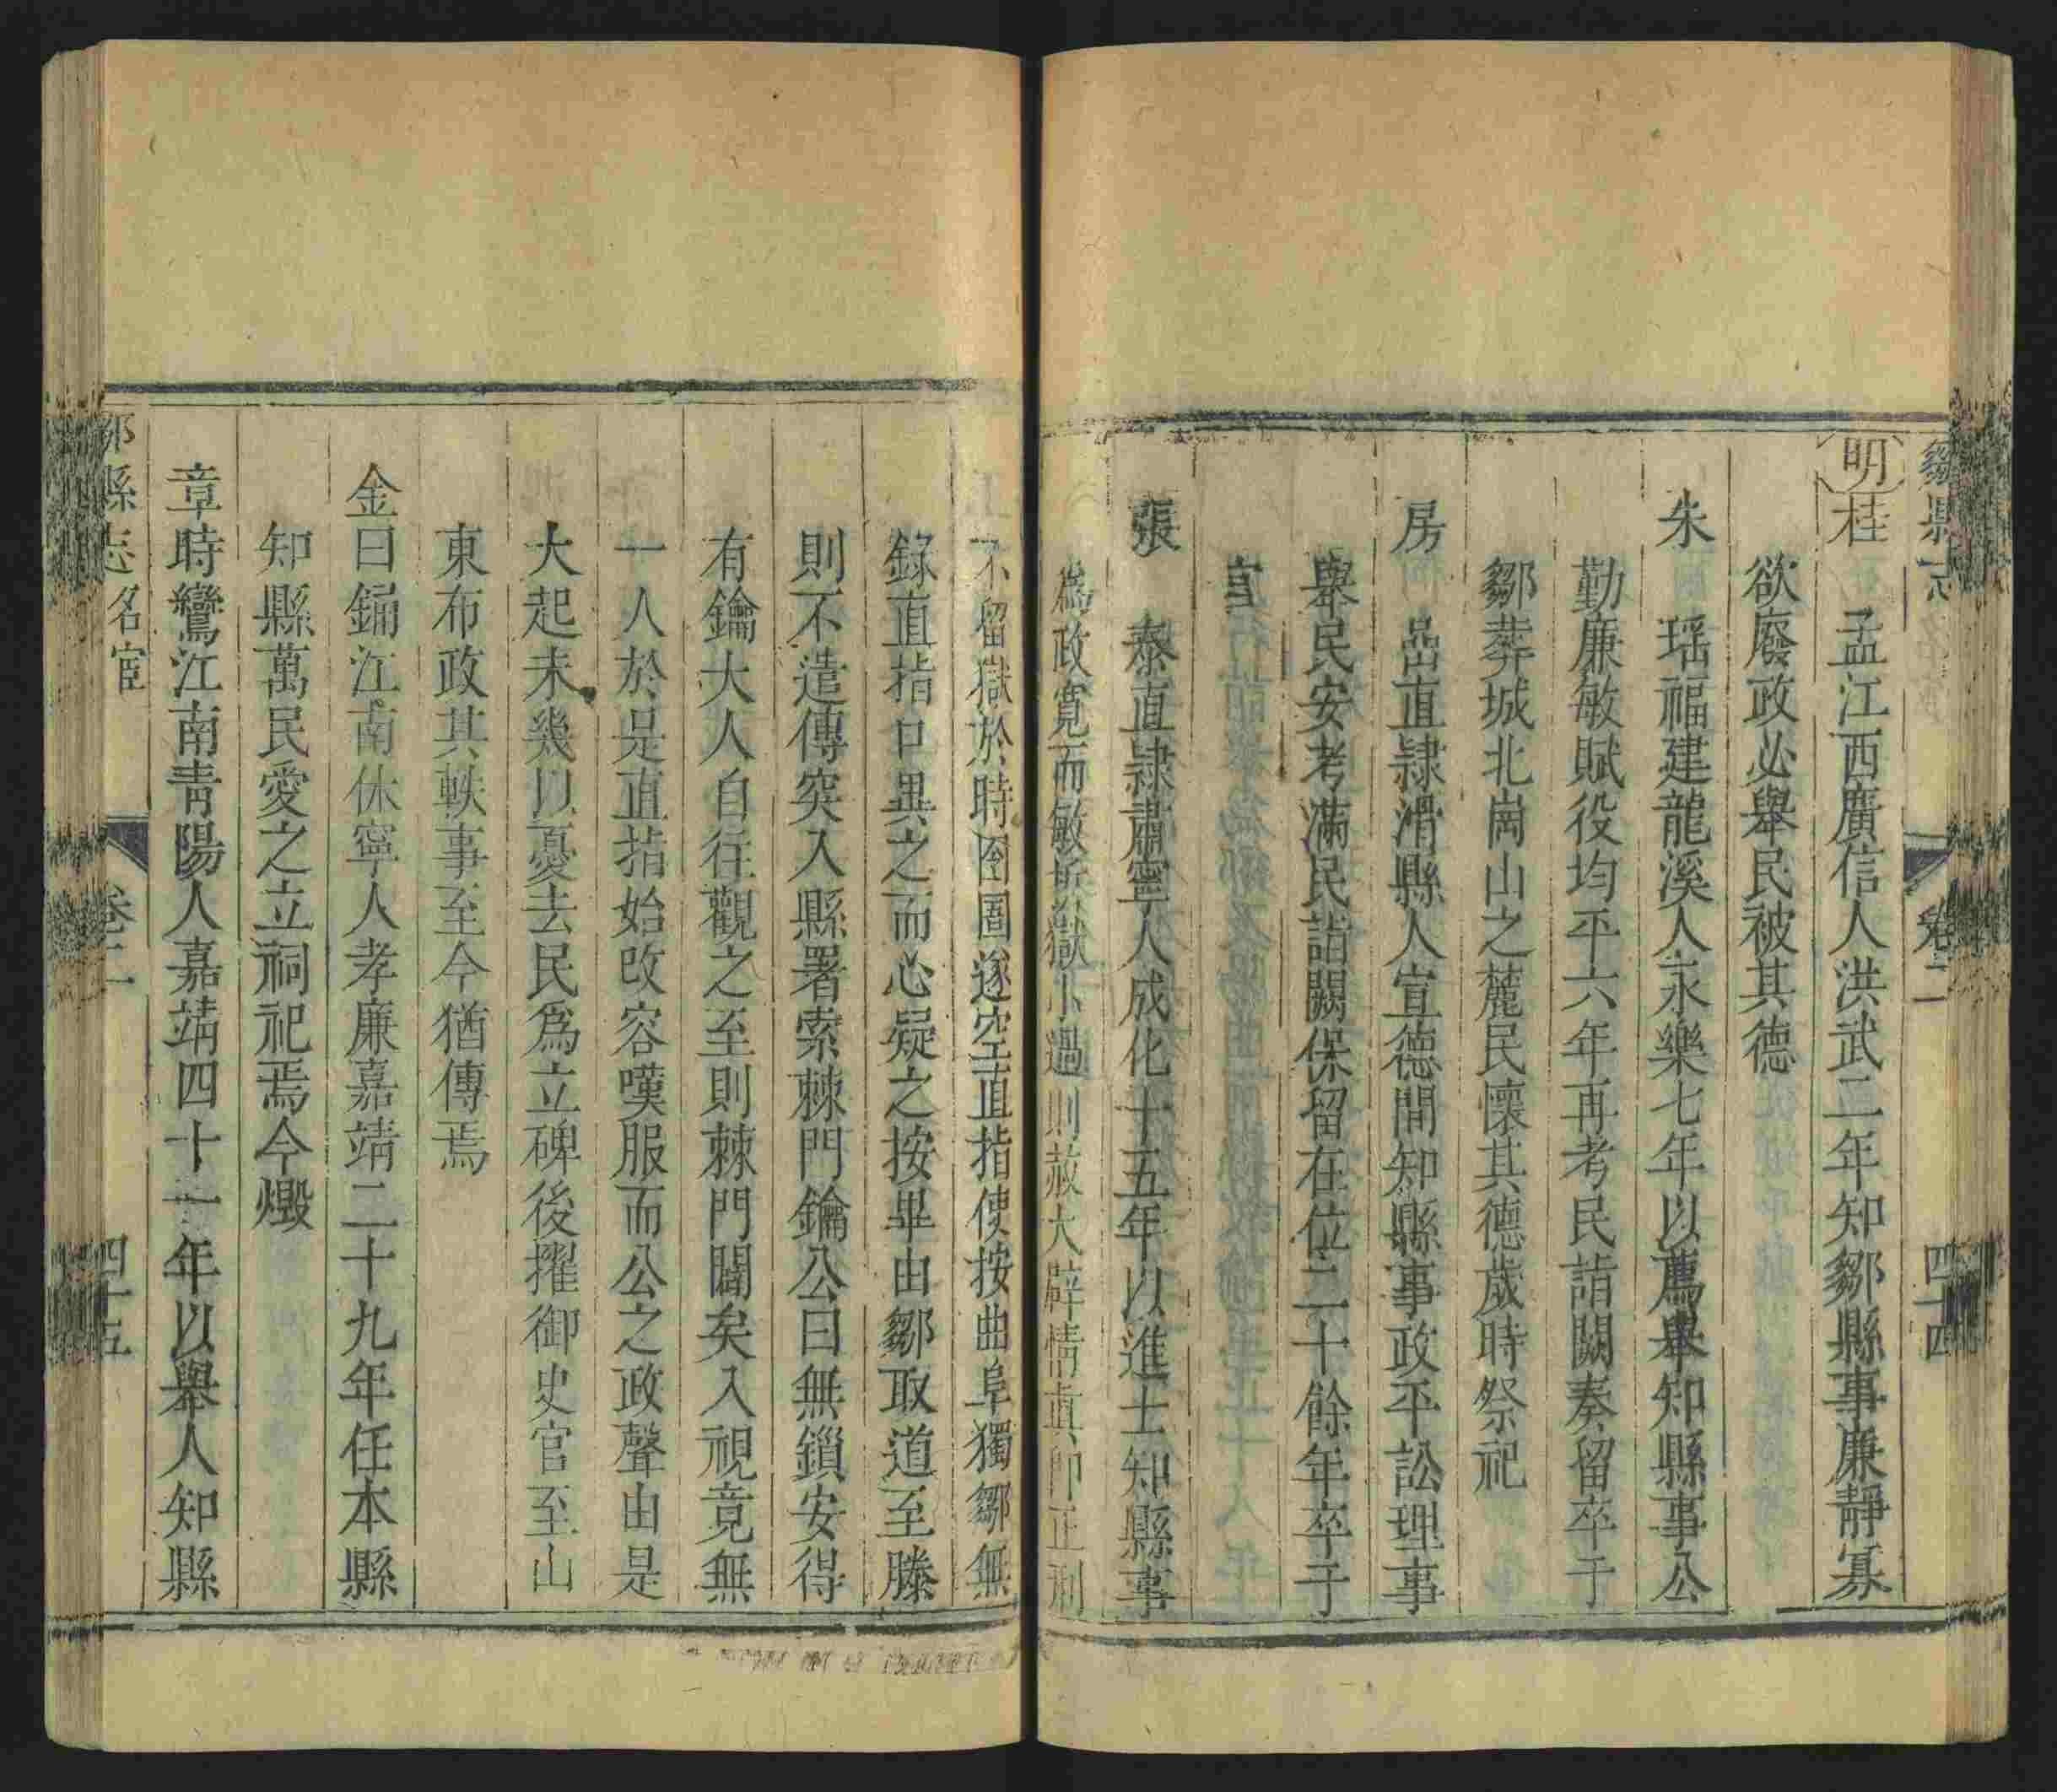 鄒縣志 卷二 四十四
明 桂 孟江西廣信人洪武二年知鄒縣事廉靜寡
欲廢政必舉民被其德
朱 瑶福建龍溪人永樂七年以薦舉知縣事公
勤廉敏賦役均平六年再考民詣闕奏留卒于
鄒葬城北崗山之麓民懷其德歲時祭祀
房 嵒直隸滑縣人宣德間知縣事政平訟理事
舉民安考滿民詣闕保留在位二十餘年卒于
官
張 泰直隸肅寧人成化十五年以進士知縣事
爲政寬而敏折獄小過則赦大辟情真即正刑
不留獄於時囹圄遂空直指使按曲阜獨鄒無
錄直指口異之而心疑之按畢由鄒取道至滕
則不遣傳突入縣署索棘門鑰公曰無鎖安得
有鑰大人自往觀之至則棘門闢矣入視竟無
一人於是直指始改容嘆服而公之政聲由是
大起未幾以憂去民爲立碑後擢御史官至山
東布政其軼事至今猶傳焉
金曰鏞江南休寧人孝廉嘉靖二十九年任本縣
知縣萬民愛之立祠祀焉今燬
章時鸞江南青陽人嘉靖四十一年以舉人知縣
鄒縣志 名宦 卷二 四十五